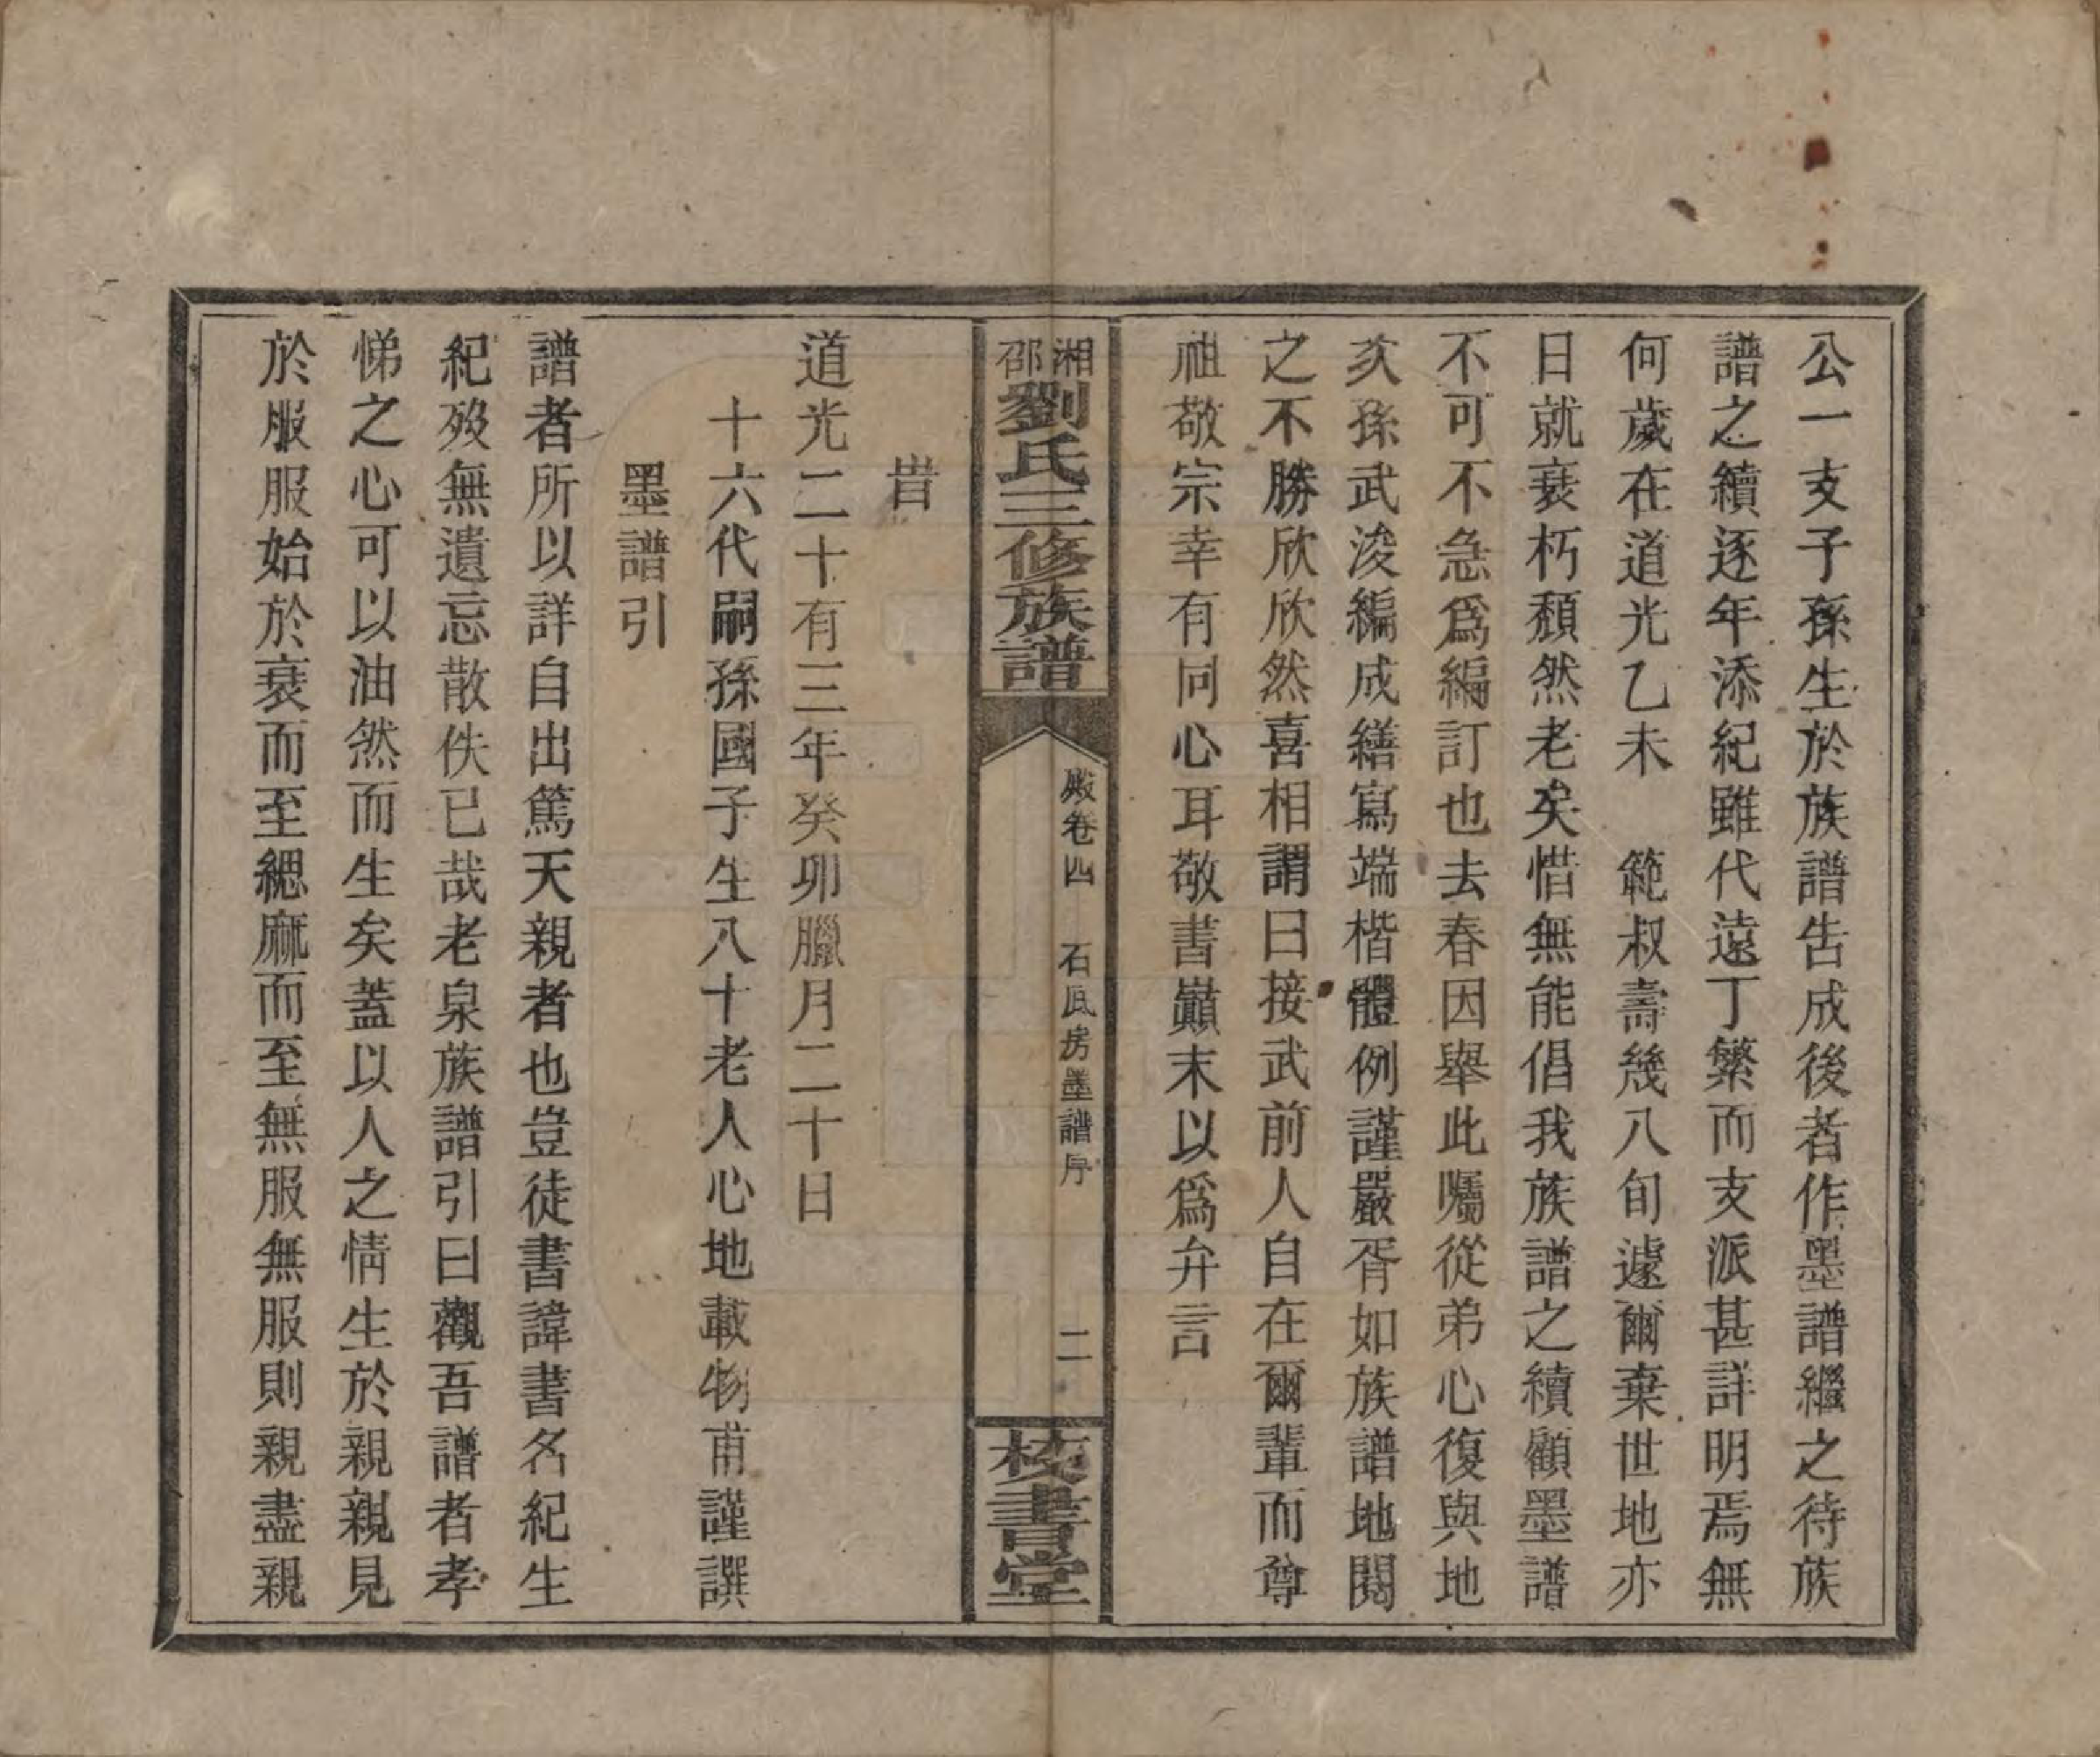 公一支子孫生於族譜告成後者作墨譜繼之待族
譜之續逐年添紀雖代遠丁繁而支派甚詳明焉無
何歲在道光乙未　範叔壽幾八旬遽爾棄世地亦
日就衰朽頹然老矣惜無能倡我族譜之續顧墨譜
不可不急爲編訂也去春因舉此囑從弟心復與地
亥孫武浚編成繕寫端楷體例謹嚴胥如族譜地閱
之不勝欣欣然喜相謂曰接武前人自在爾輩而尊
祖敬宗幸有同心耳敬書巔末以爲弁言
湘邵劉氏三修族譜
殿卷四　石瓦房墨譜序　二
校書堂
旹
道光二十有三年癸卯臘月二十日
十六代嗣孫國子生八十老人心地載物甫謹譔
墨譜引
譜者所以詳自出篤天親者也豈徒書諱書名紀生
紀歿無遺忘散佚已哉老泉族譜引曰觀吾譜者孝
悌之心可以油然而生矣蓋以人之情生於親親見
於服服始於衰而至緦麻而至無服無服則親盡親